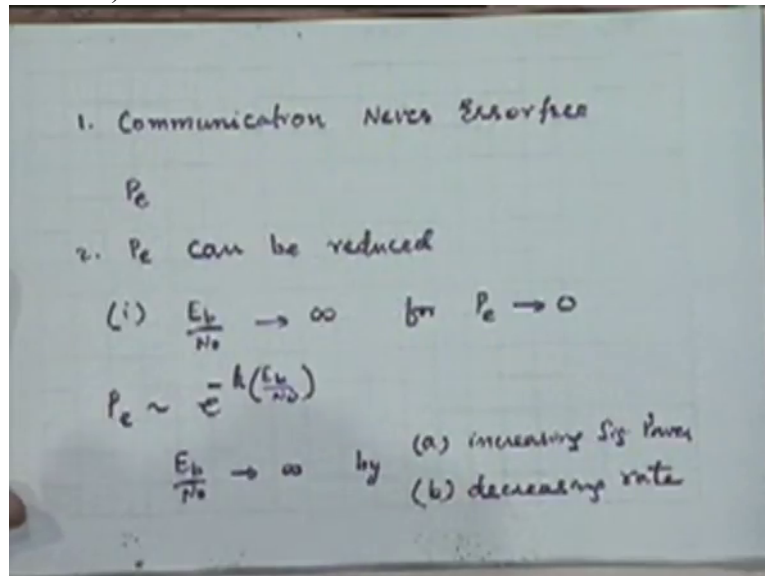 1. Communication Never Errorfree
Pe
2. Pe can be reduced
(i) Eb/No → ∞ for Pe → 0
Pe ~ e^-k(Eb/No)
Eb/No → ∞ by (a) increasing Sig Power
(b) decreasing rate